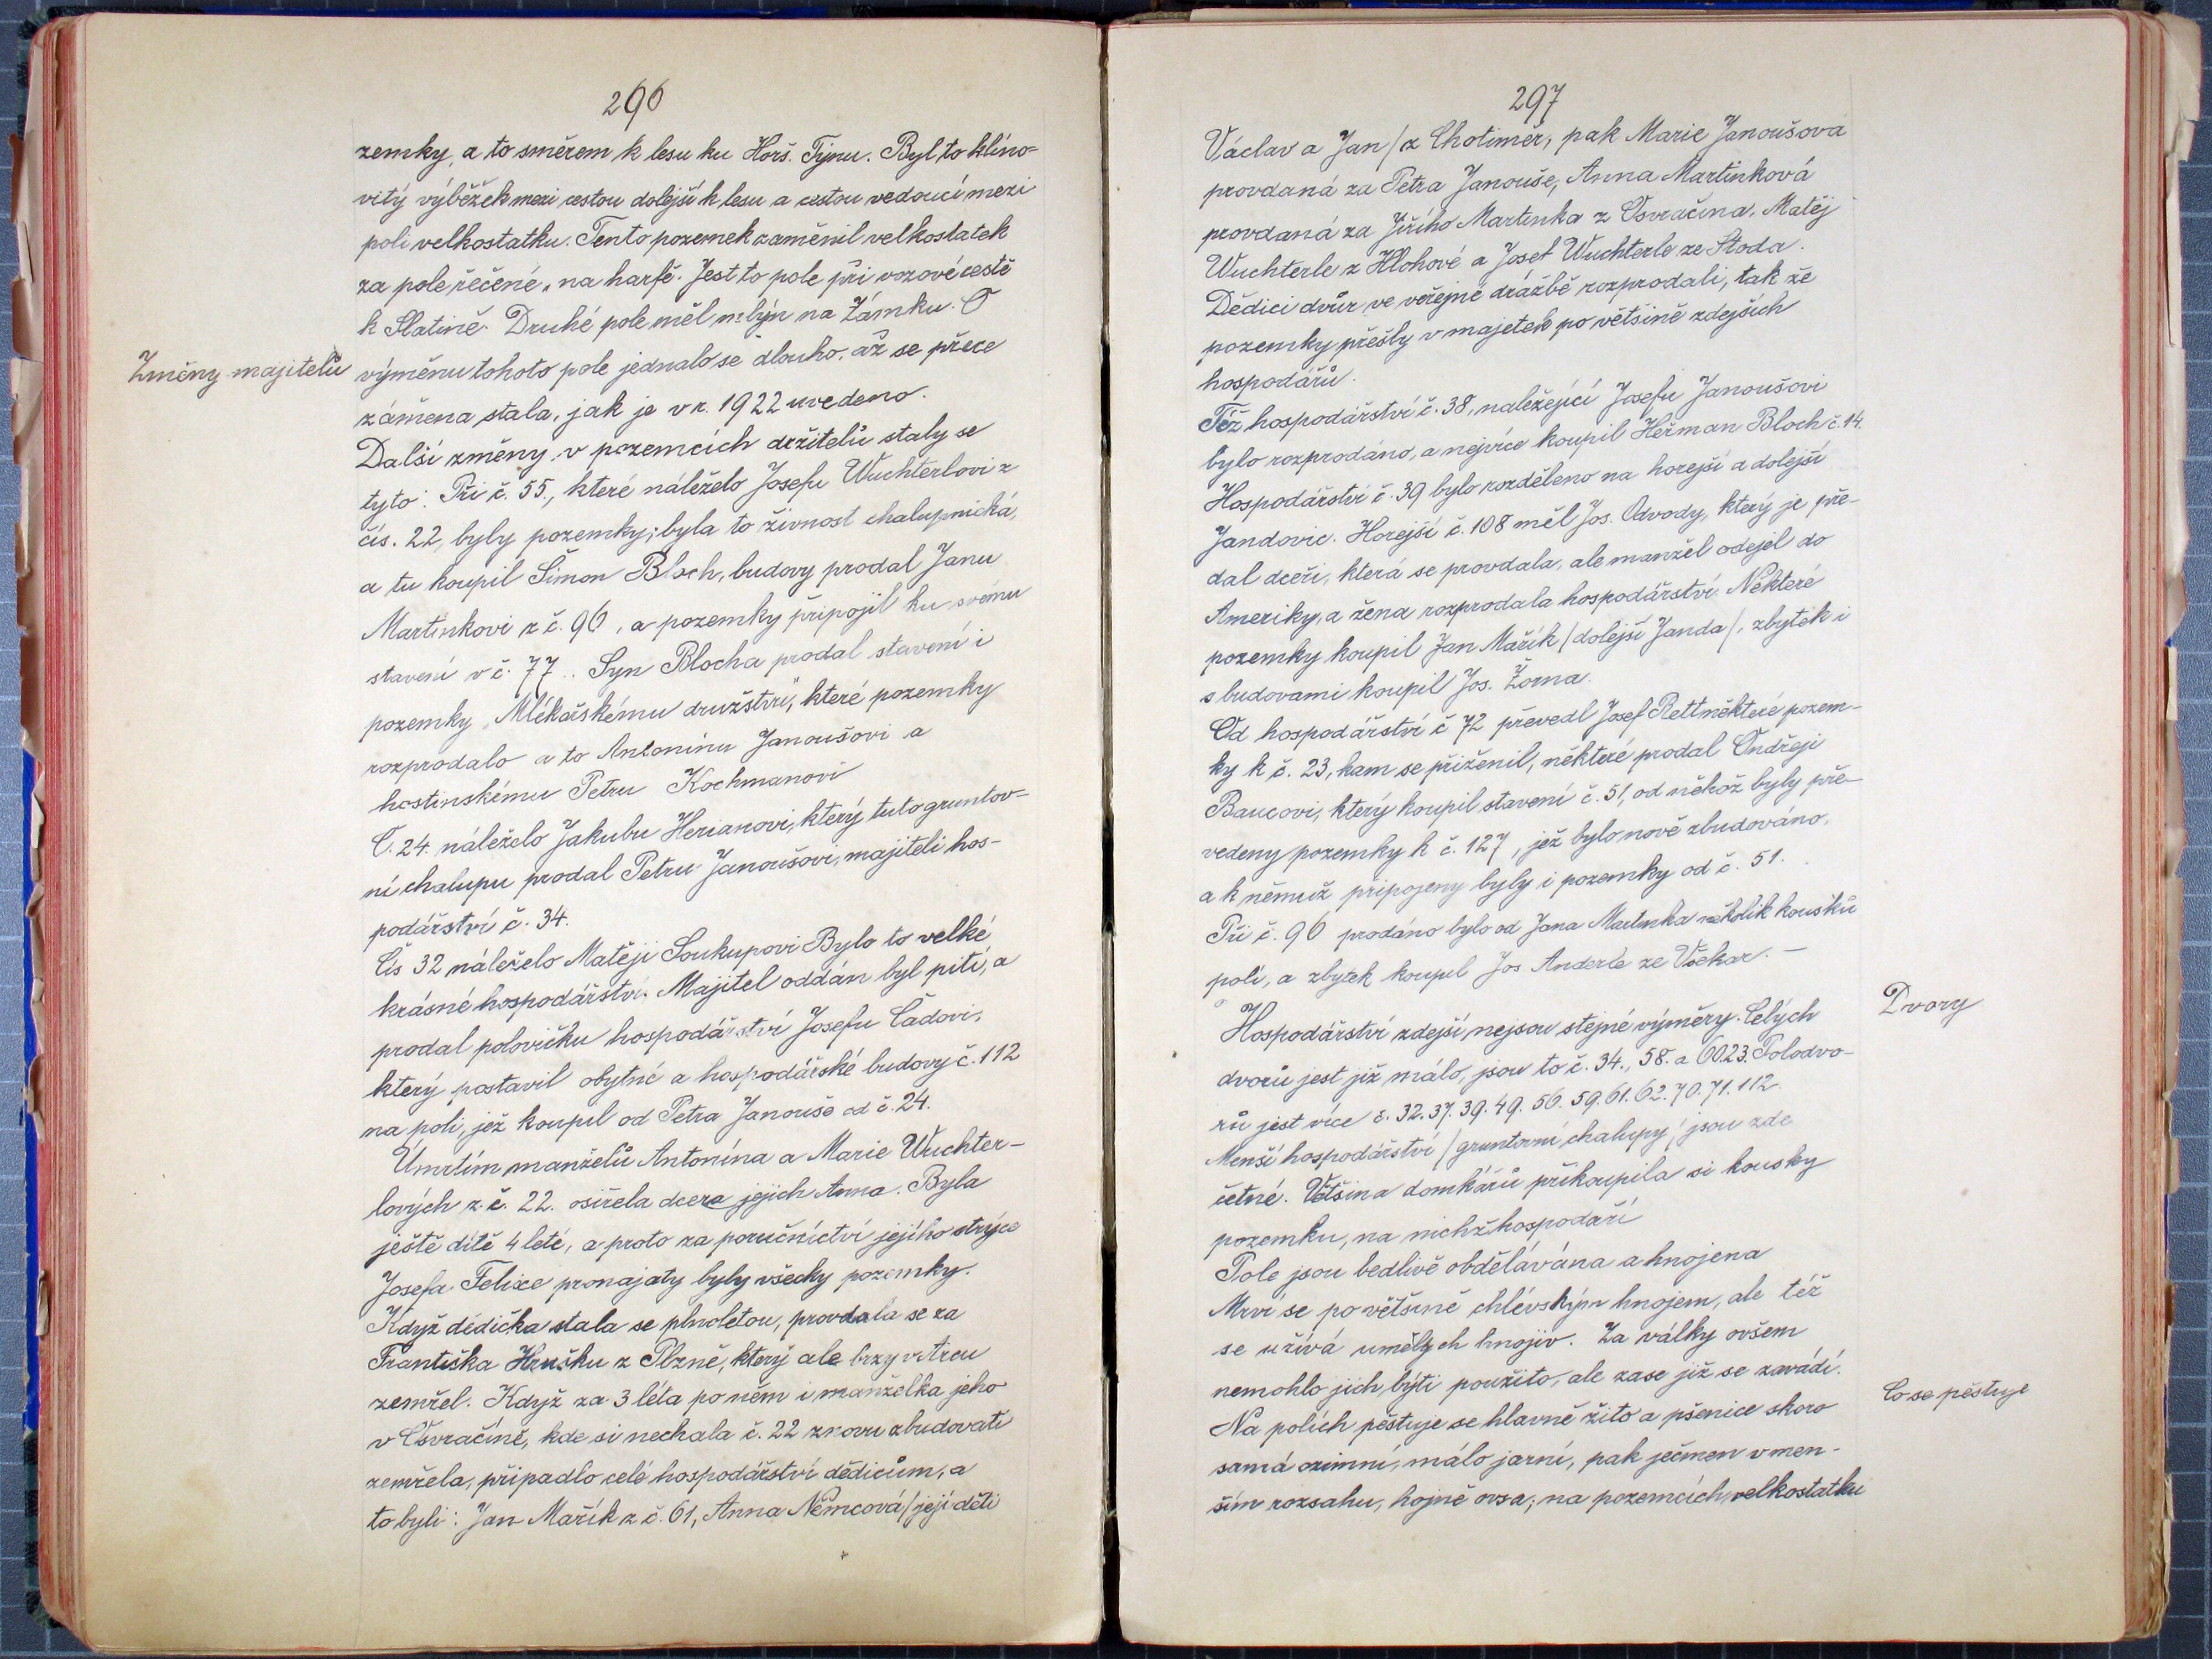 296
zemky, a to směrem k lesu ku Horš. Týnu. Byl to klíno-
vitý výběžek mezi cestou dolejší k lesu a cestou vedoucí mezi
poli velkostatku. Tento pozemek zaměnil velkostatek
za pole řečené „na harfě. Jest to pole při vozové cestě
k Slatině. Druhé pole měl mlýn na Zámku. O
Změny majitelů
výměnu tohoto pole jednalo se dlouho, až se přece
záměna stala, jak je v r. 1922 uvedeno.
Další změny v pozemcích držitelů staly se
tyto: Při č. 55., které náleželo Josefu Wuchterlovi z
čís. 22, byly pozemky; byla to živnost chalupnická,
a tu koupil Šimon Bloch, budovy prodal Janu
Martinkovi z č. 96, a pozemky připojil ku svému
stavení v č. 77.. Syn Blocha prodal stavení i
pozemky „Mlékařskému družstvu", které pozemky
rozprodalo a to Antonínu Janoušovi a
hostinskému Petru Kochmanovi
Č. 24. náleželo Jakubu Herianovi, který tuto gruntov-
ní chalupu prodal Petru Janoušovi, majiteli hos-
podářství č. 34.
Čís 32 náleželo Matěji Soukupovi Bylo to velké
krásné hospodářství. Majitel oddán byl pití, a
prodal polovičku hospodářství Josefu Čadovi,
který postavil obytné a hospodářské budovy č. 112
na poli, jež koupil od Petra Janouše od č. 24.
Úmrtím manželů Antonína a Marie Wuchter-
lových z č. 22. osiřela dcera jejich Anna. Byla
ještě dítě 4 leté, a proto za poručnictví jejího strýce
Josefa Felixe pronajaty byly všecky pozemky.
Když dědička stala se plnoletou, provdala se za
Františka Hrušku z Plzně, který ale brzy v Arcu
zemřel. Když za 3 léta po něm i manželka jeho
v Osvračíně, kde si nechala č. 22 znovu zbudovati
zemřela, připadlo celé hospodářství dědicům, a
to byli: Jan Mařík z č. 61, Anna Němcová /její děti
297
Václav a Jan/ z Chotiměř, pak Marie Janoušová
provdaná za Petra Janouše, Anna Martinková
provdaná za Jiřího Martinka z Osvračína, Matěj
Wuchterle z Hlohové a Josef Wuchterle ze Stoda.
Dědici dvůr ve veřejné dražbě rozprodali, tak že
pozemky přešly v majetek po většině zdejších
hospodářů.
Též hospodářství č. 38, naležející Josefu Janoušovi
bylo rozprodáno, a nejvíce koupil Heřman Bloch č. 14.
Hospodářství č. 39 bylo rozděleno na horejší a dolejší
Jandovic. Horejší č. 108 měl Jos. Odvody, který je pře-
dal dceři, která se provdala, ale manžel odejel do
Ameriky, a žena rozprodala hospodářství. Některé
pozemky koupil Jan Mařík /dolejší Janda/, zbytek i
s budovami koupil Jos. Žorna.
Od hospodářství č 72 převedl Josef Rett některé pozem-
ky k č. 23, kam se přiženil, některé prodal Ondřeji
Baucovi, který koupil stavení č. 51, od něhož byly pře-
vedeny pozemky k č. 127, jež bylo nově zbudováno,
a k němuž připojeny byly i pozemky od č. 51.
Při č. 96 prodáno bylo od Jana Martinka několik kousků
polí, a zbytek koupil Jos Anderle ze Všekar. —
Dvory
Hospodářství zdejší nejsou stejné výměry. Celých
dvorů jest již málo, jsou to č. 34., 58. a 60.23. Polodvo-
rů jest více č. 32. 37. 39. 49. 56. 59. 61. 62. 70. 71. 112.
Menší hospodářství /gruntovní chalupy/ jsou zde
četné. Většina domkářů přikoupila si kousky
pozemku, na nichž hospodaří
Pole jsou bedlivě obdělávána a hnojena
Mrví se po většině chlévským hnojem, ale též
se užívá umělých hnojiv. Za války ovšem
nemohlo jich býti použito, ale zase již se zavádí.
Co se pěstuje
Na polích pěstuje se hlavně žito a pšenice skoro
samá ozimní, málo jarní, pak ječmen v men-
ším rozsahu, hojně ovsa; na pozemcích velkostatku